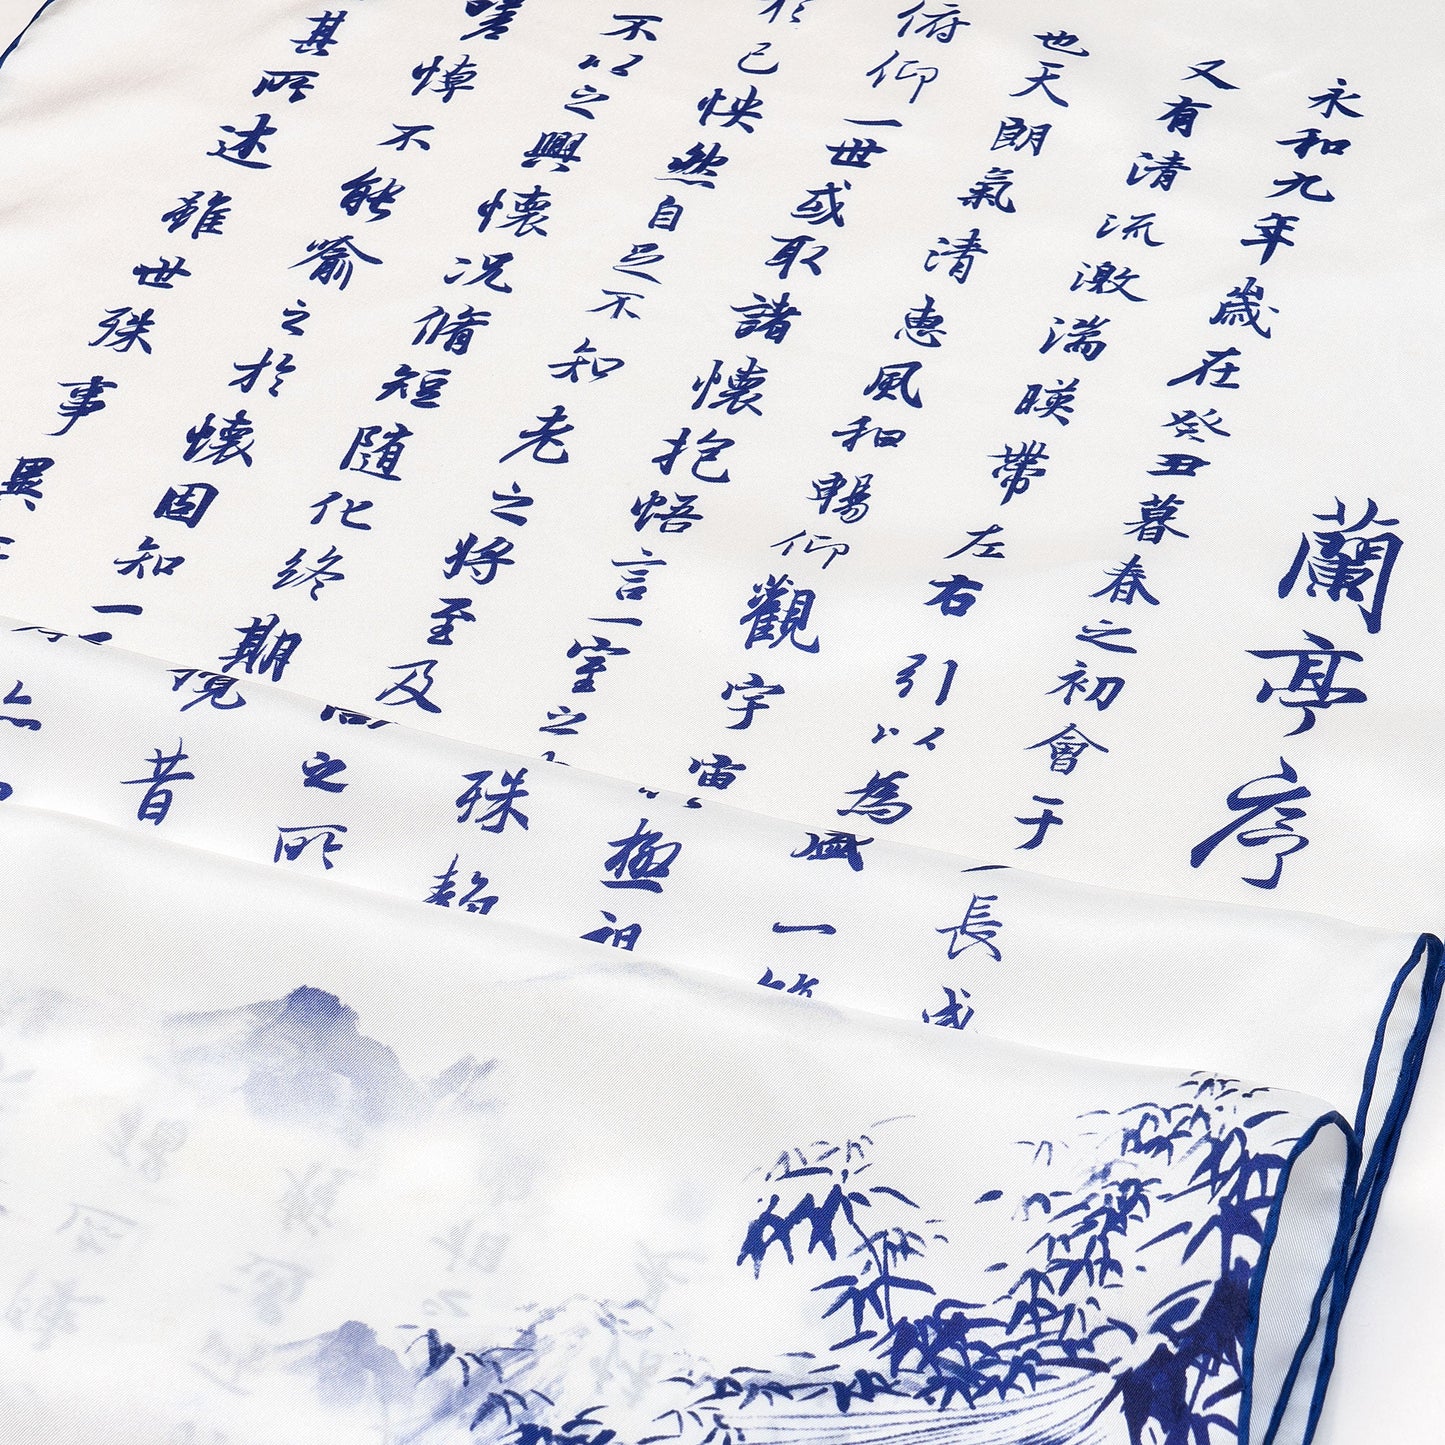 蘭亭序
永和九年歲在癸丑暮春之初會于長咸
又有清流激湍暎帶左右引以為盛一
也天朗氣清惠風和暢仰觀宇宙極
俯仰一世或取諸懷抱悟言一室之殊
於己怏然自足不知老之將至及之所
不以之興懷況脩短隨化終期昔
嗟悼不能喻之於懷固知一
甚所述雖世殊事異